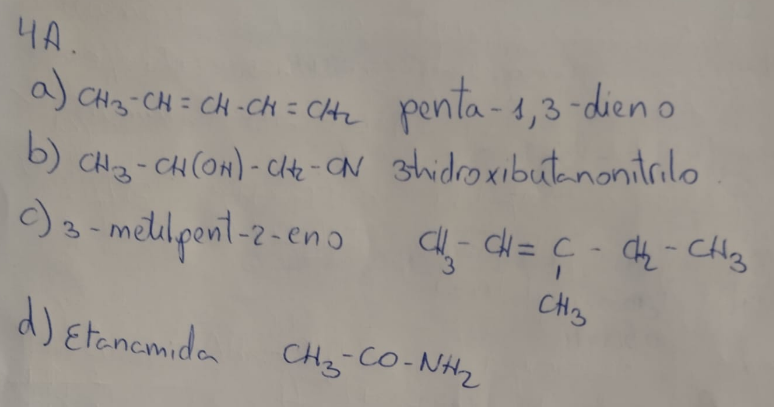 4A.
a) CH3-CH=CH-CH=CH2 penta-1,3-dieno
b) CH3-CH(OH)-CH2-CN 3hidroxibutanonitrilo.
c) 3-metilpent-2-eno CH3-CH=C-CH2-CH3
CH3
d) Etanamida CH3-CO-NH2